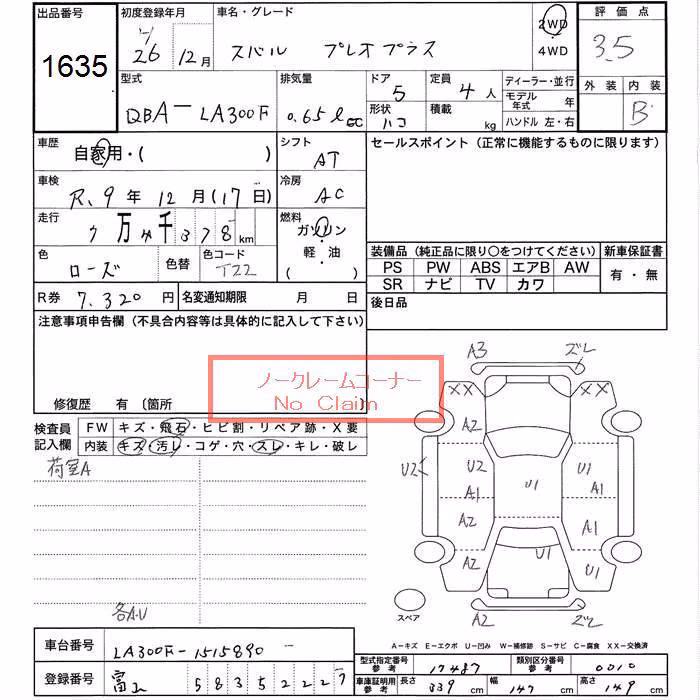 出品番号 初度登録年月 車名・グレード 2WD 4WD 評価点
1635 26 12月 スバル プレオプラス 3.5
型式 排気量 ドア 定員 ディーラー・並行 外装 内装
QBA-LA300F 0.65ℓ 5 4人 モデル年式 年 B
形状 積載 kg ハンドル 左・右
ハコ
車歴 シフト セールスポイント (正常に機能するものに限ります)
自家用・( ) AT
車検 冷房
R. 9年12月(17日) AC
走行 燃料
万 千378km ガソリン
色 色替 色コード 軽・油
ローズ T22 ( )
装備品(純正品に限り〇をつけてください) 新車保証書
PS PW ABS エアB AW 有・無
SR ナビ TV カワ
R券 7.320円 名変通知期限 月 日 後日品
注意事項申告欄(不具合内容等は具体的に記入して下さい)
ノークレームコーナー
No Claim
修復歴 有 〔箇所 〕
検査員記入欄 FW キズ・飛石・ヒビ割・リペア跡・X要
内装 キズ・汚レ・コゲ・穴・スレ・キレ・破レ
荷室A
各A.U
A3 ズレ
XX XX
A2
U2 U2 A1 U1 A1
A2 A1
A2 U1 U1
A2 ズレ
スペア
A－キズ E－エクボ U－凹み W－補修跡 S－サビ C－腐食 XX－交換済
車台番号 LA300F-1515890
型式指定番号 参考 17487 類別区分番号 参考 0010
登録番号 富山 5835 2227
車庫証明用 参考 長さ 339cm 幅 147cm 高さ 149cm